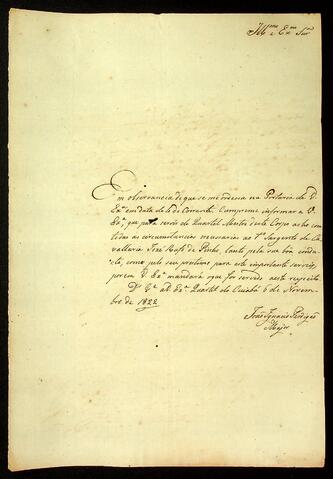 Illmo e Exmo Snr
Em observancia do que se me ordena na Portaria de V.
Exa em data de 6 do Corrente. Cumpre-me informar a V.
Exa, que para servir de Quartel Mestre deste Corpo acho com
todas as circumstancias necessarias ao 1º Sargento de Ca
vallaria José de Pinho, tanto pela sua boa condu
cta, como pelo seu prestimo para este importante serviço,
porem V. Exa mandará o que for servido a este respeito.
Ds Ge a V. Exa. Quartel do Cuiabá 6 de Novem-
bro de 1822
João Ignacio
Major